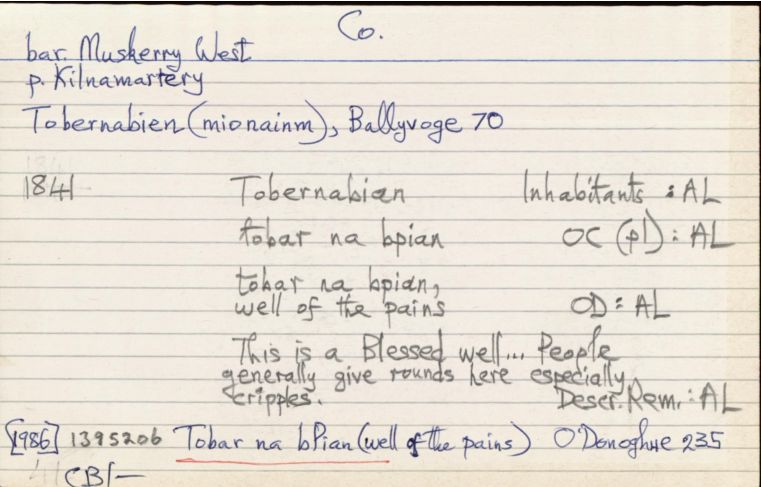 Co.
bar. Muskerry West
p. Kilnamartery
Tobernabien (mionainm), Ballyvoge 70
1841 Tobernabian Inhabitants : AL
tobar na bpian OC (pl) : AL
tobar na bpian,
well of the pains OD : AL
This is a Blessed well... People
generally give rounds here especially
cripples. Descr. Rem. : AL
[1986] 1395206 Tobar na bPian (well of the pains) O'Donoghue 235
41 CB/—